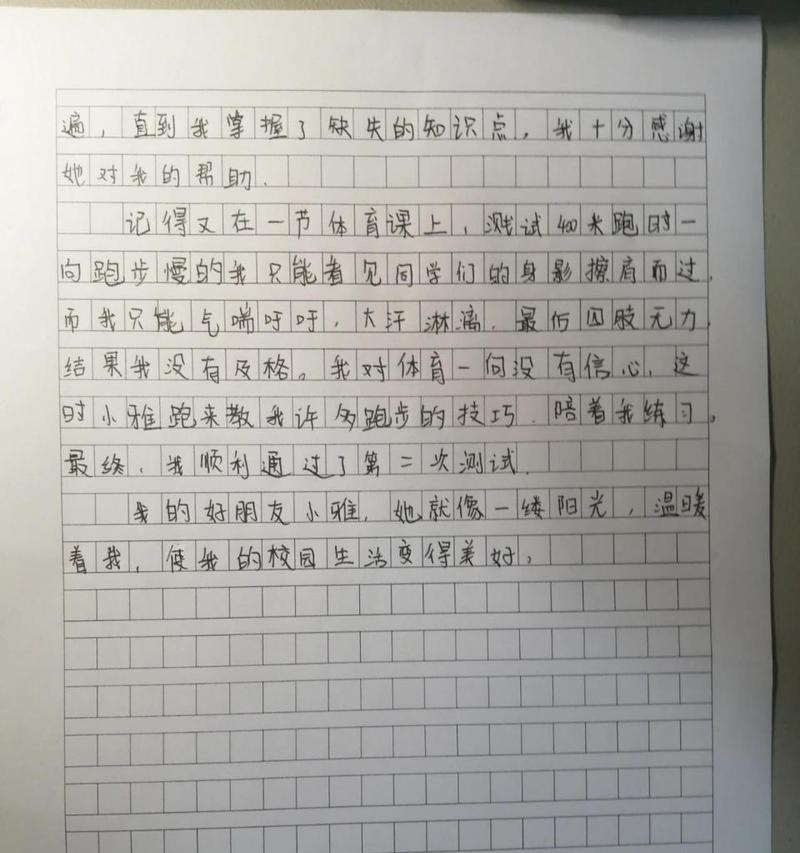 遍，直到我掌握了缺失的知识点，我十分感谢
她对我的帮助.
记得又在一节体育课上，测试400米跑时一
向跑步慢的我只能看见同学们的身影擦肩而过,
而我只能气喘吁吁，大汗淋漓，最后四肢无力,
结果我没有及格。我对体育一向没有信心，这
时小雅跑来教我许多跑步的技巧.陪着我练习,
最终，我顺利通过了第二次测试.
我的好朋友小雅，她就像一缕阳光，温暖
着我，使我的校园生活变得美好。